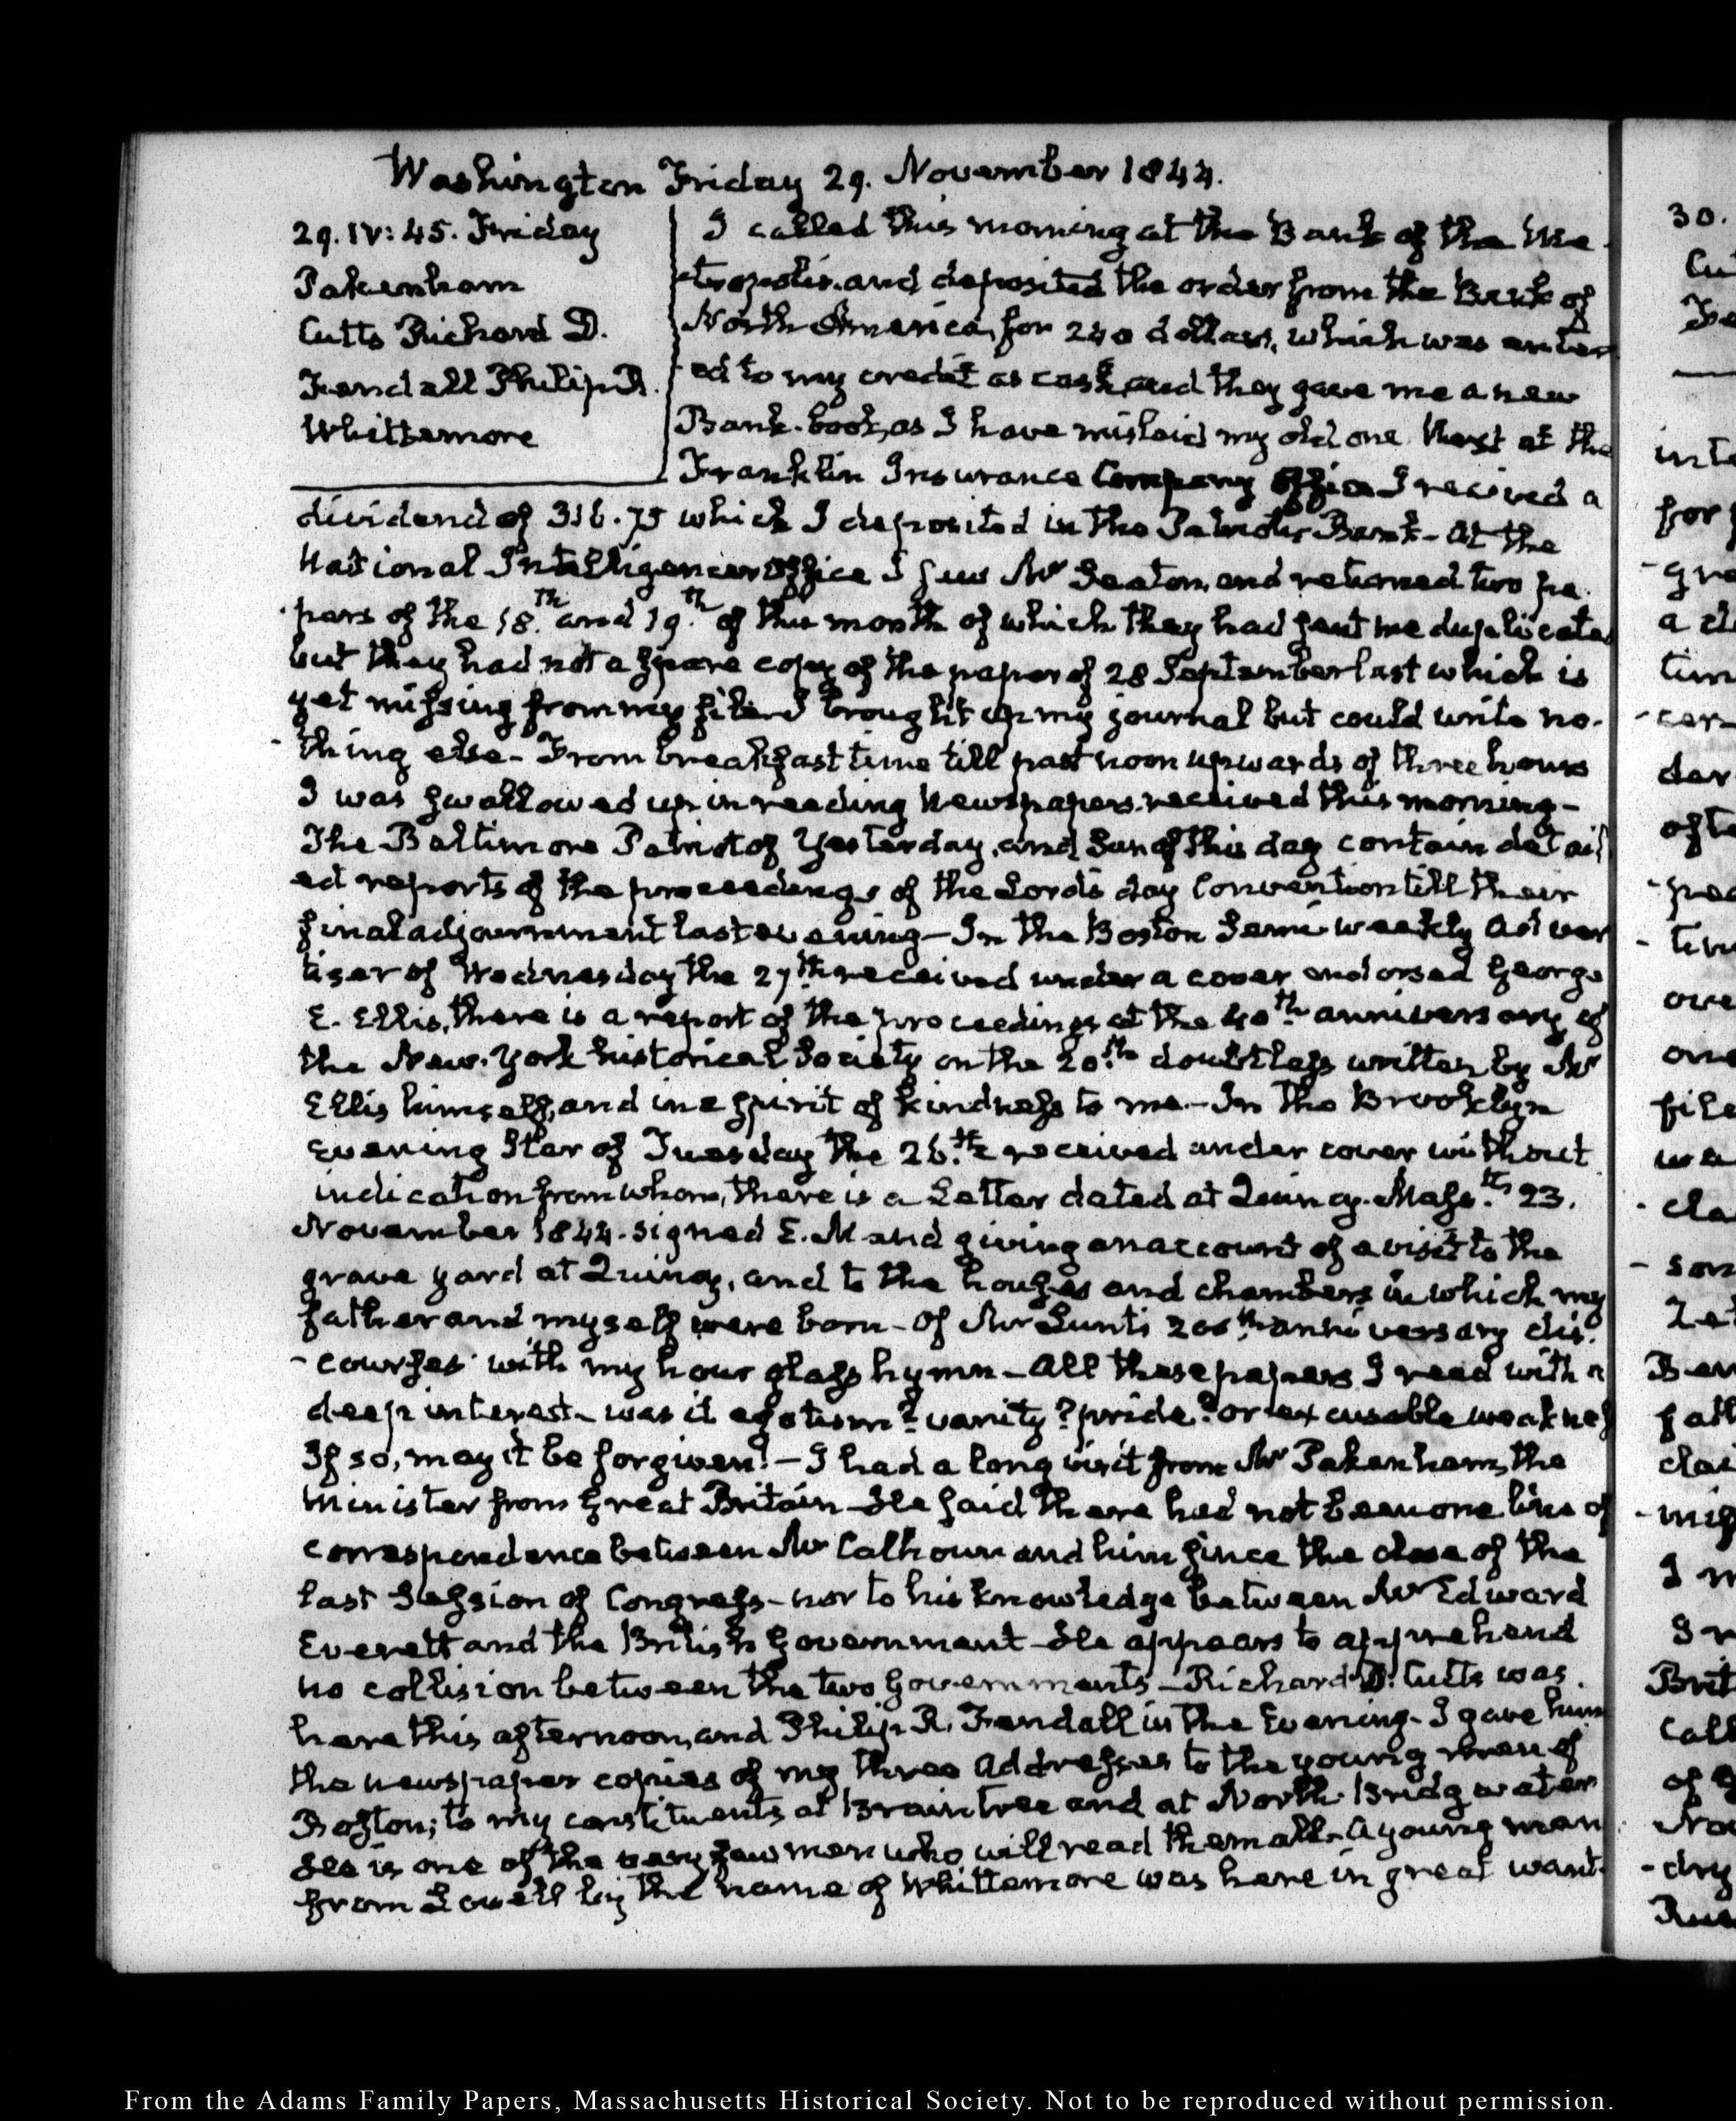 Washington Friday 29. November 1844.
29. IV: 45. Friday
Pakenham
Cutts Richard D.
Fendall Philip R.
Whittemore
I called this morning at the Bank of the Me-
-tropolis. and deposited the order from the Bank of
North America, for 240 dollars, which was enter
ed to my credit as cash, and they gave me a new
Bank-book, as I have mislaid my old one. Next at the
Franklin Insurance Company Office I received a
dividend of 316.75 which I deposited in the Patriotic Bank - At the
National Intelligencer Office I saw Mr Seaton, and returned two pa-
-pers of the 18th and 19th of this month of which they had sent me duplicates
but they had not a spare copy of the paper of 28 September last which is
yet missing from my file. I brought up my journal but could write no-
-thing else - From breakfast time till past noon upwards of three hours
I was swallowed up in reading Newspapers received this morning -
The Baltimore Patriot of Yesterday, and Sun of this day contain detail
ed reports of the proceedings of the Lords day Convention till their
final adjournment last evening - In the Boston Semi-weekly Adver
tiser of Wednesday the 27th received under a cover endorsed George
E. Ellis, there is a report of the proceedings at the 40th anniversary of
the New-York historical Society on the 20th doubtless written by Mr
Ellis himself, and in a spirit of kindness to me - In the Brooklyn
Evening Star of Tuesday the 26th received under cover without
indication from whom, there is a Letter dated at Quincy. Mass.ts 23.
November 1844. signed E. M and giving an account of a visit to the
grave yard at Quincy, and to the houses and chambers in which my
father and myself were born - Of Mr Lunt's 200th anniversary dis-
-courses with my hour glass hymn - All these papers I read with a
deep interest - was it egotism? vanity? pride? or excusable weakness
If so, may it be forgiven! - I had a long visit from Mr Pakenham, the
Minister from Great Britain - He said there had not been one line of
correspondence between Mr Calhoun and him since the close of the
last Session of Congress - nor to his knowledge between Mr Edward
Everett and the British Government - He appears to apprehend
no collision between the two Governments - Richard D. Cutts was
here this afternoon, and Philip R. Fendall in the Evening - I gave him
the newspaper copies of my three Addresses to the young men of
Boston; to my constituents at Braintree and at North-Bridgwater
He is one of the very few men who will read them all - A young man
from Lowell by the name of Whittemore was here in great want
From the Adams Family Papers, Massachusetts Historical Society. Not to be reproduced without permission.